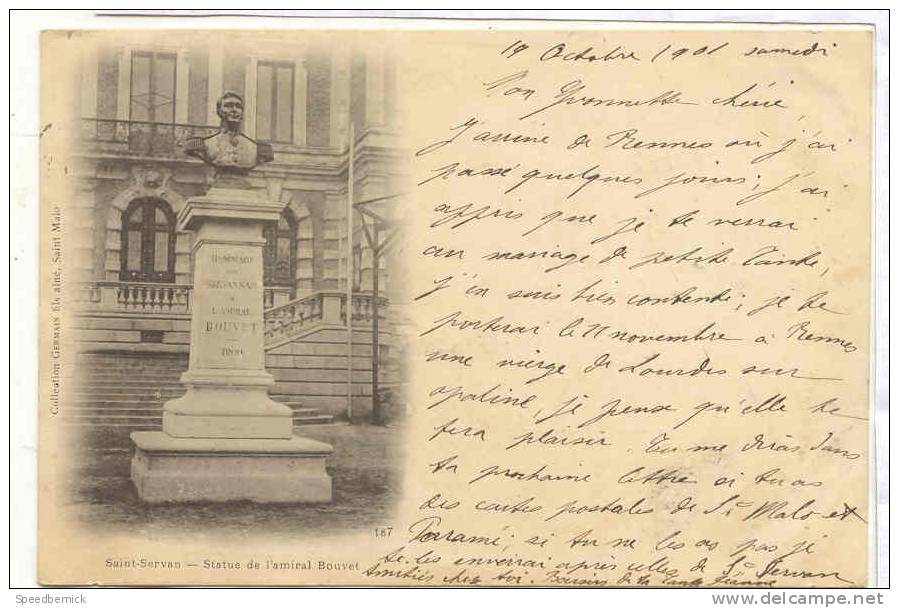 19 Octobre 1901 samedi
Mon Yvonnette chérie,
J'arrive de Rennes où j'ai
passé quelques jours; j'ai
appris que je te verrai
au mariage de petite Tante,
j'en suis bien contente; je te
porterai le 11 novembre à Rennes
une vierge de Lourdes sur
opaline, je pense qu'elle te
fera plaisir. Tu me diras dans
ta prochaine lettre si tu as
des cartes postales de St Malo et
Paramé; si tu ne les as pas je
te les enverrai après celles de St Servan
Amitiés chez toi. Baisers de ta Tante Jeanne
HOMMAGE
DES
SERVANNAIS
A
L'AMIRAL
BOUVET
Collection GERMAIN fils aîné, Saint Malo
187
Saint-Servan — Statue de l'amiral Bouvet
Speedbemick
http://www.delcampe.net